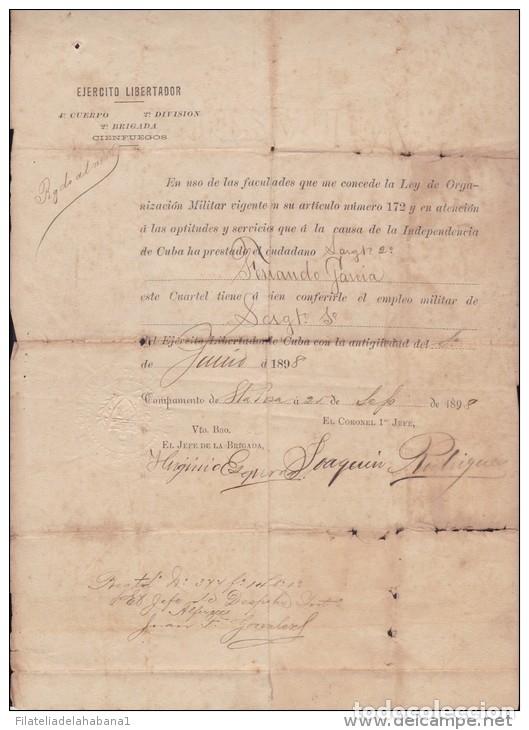 EJERCITO LIBERTADOR
4º CUERPO 2ª DIVISION
2ª BRIGADA
CIENFUEGOS
En uso de las faculades que me concede la Ley de Orga-
nización Militar vigente n su articulo número 172 y en atención
á las aptitudes y servicios que á la causa de la Independencia
de Cuba ha prestado el ciudadano Sargtº 2º
Fernando Garcia
este Cuartel tiene á bien conferirle el empleo militar de
Sargtº
del Ejército Libertador de Cuba con la antigüedad del
de Junio d 1898
Campamento de Sta Rosa á 21 de Sep de 1898
Vto. Bno. EL CORONEL 1er JEFE,
EL JEFE DE LA BRIGADA,
Higinio Esquerra Joaquin Rodriguez
El Jefe del Despacho
Alferez
Juan F. Gonzalez
Filateliadelahabana1
todocoleccion.net